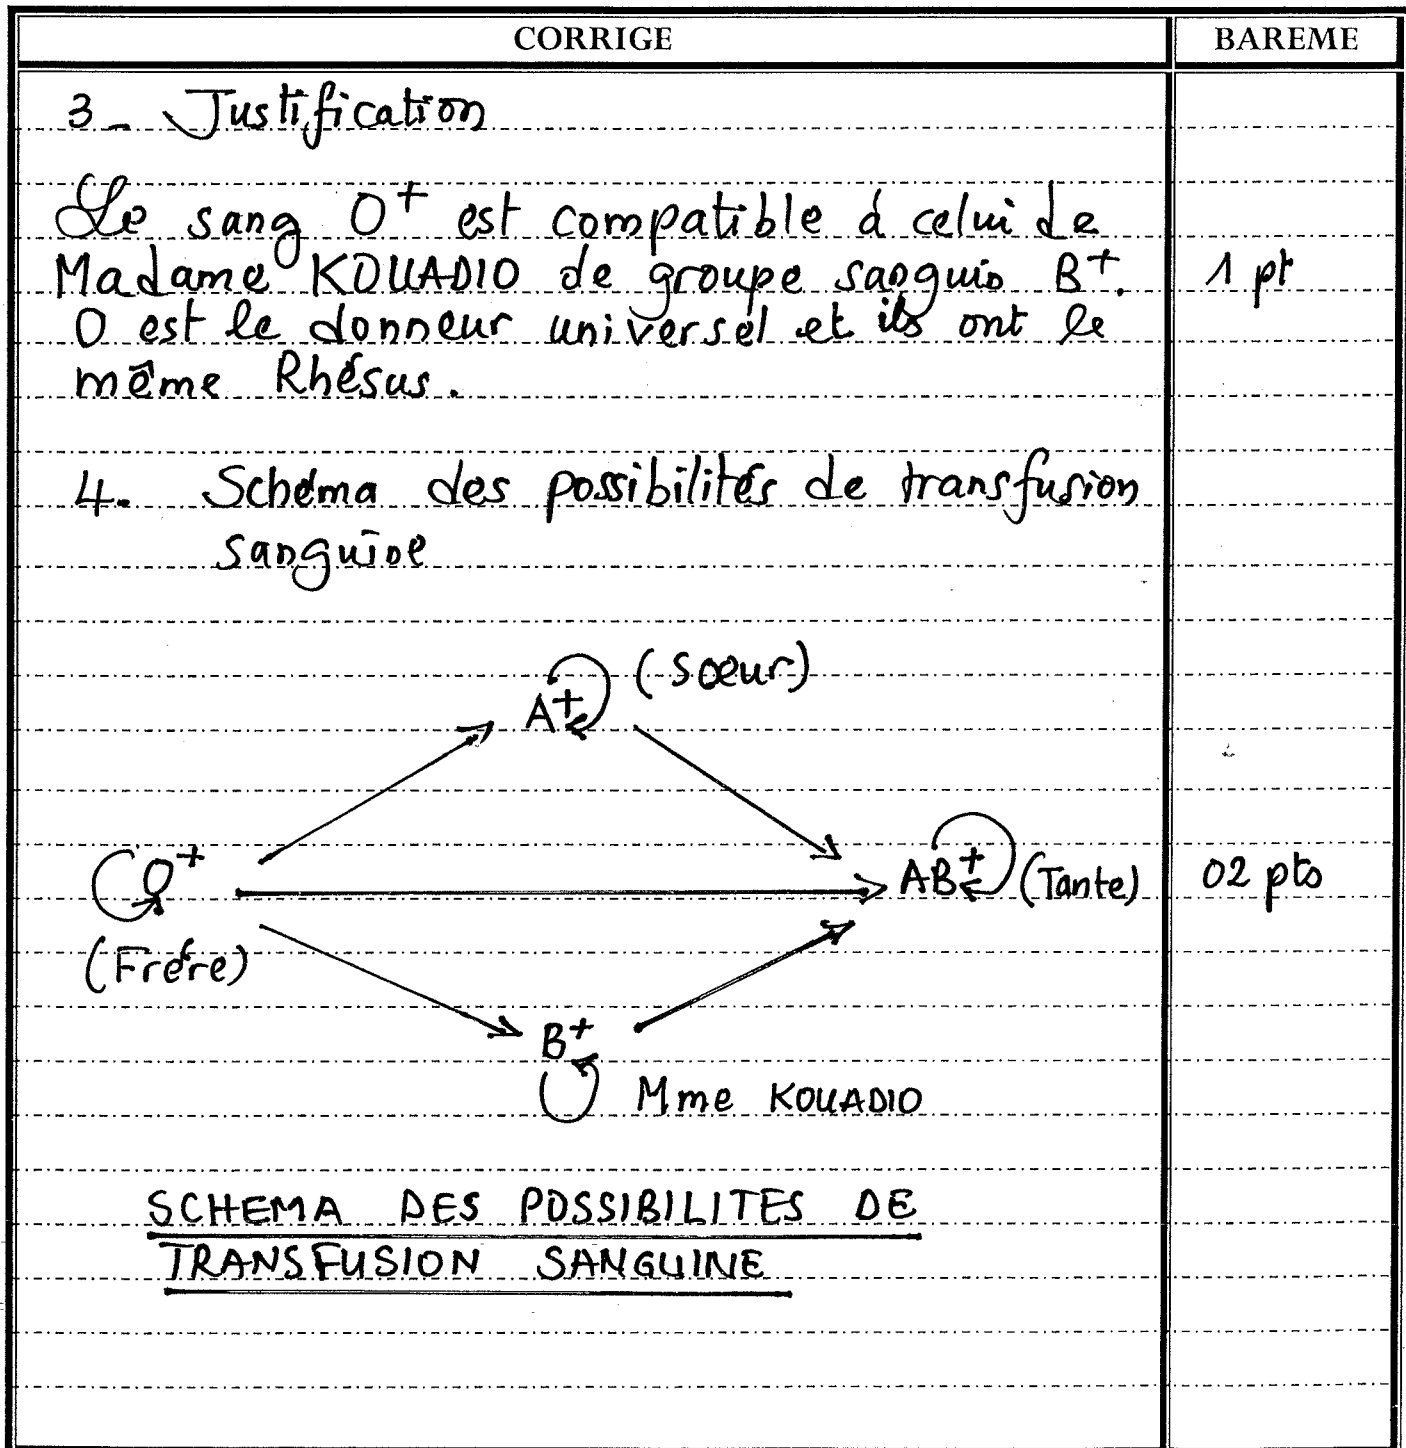 CORRIGE BAREME
3_ Justification
Le sang O+ est compatible à celui de
Madame KOUADIO de groupe sanguin B+. 1 pt
O est le donneur universel et ils ont le
même Rhésus.
4. Schéma des possibilités de transfusion
sanguine
(Soeur)
A+
O+ AB+ (Tante) 02 pts
(Frère)
B+
Mme KOUADIO
SCHEMA DES POSSIBILITES DE
TRANSFUSION SANGUINE